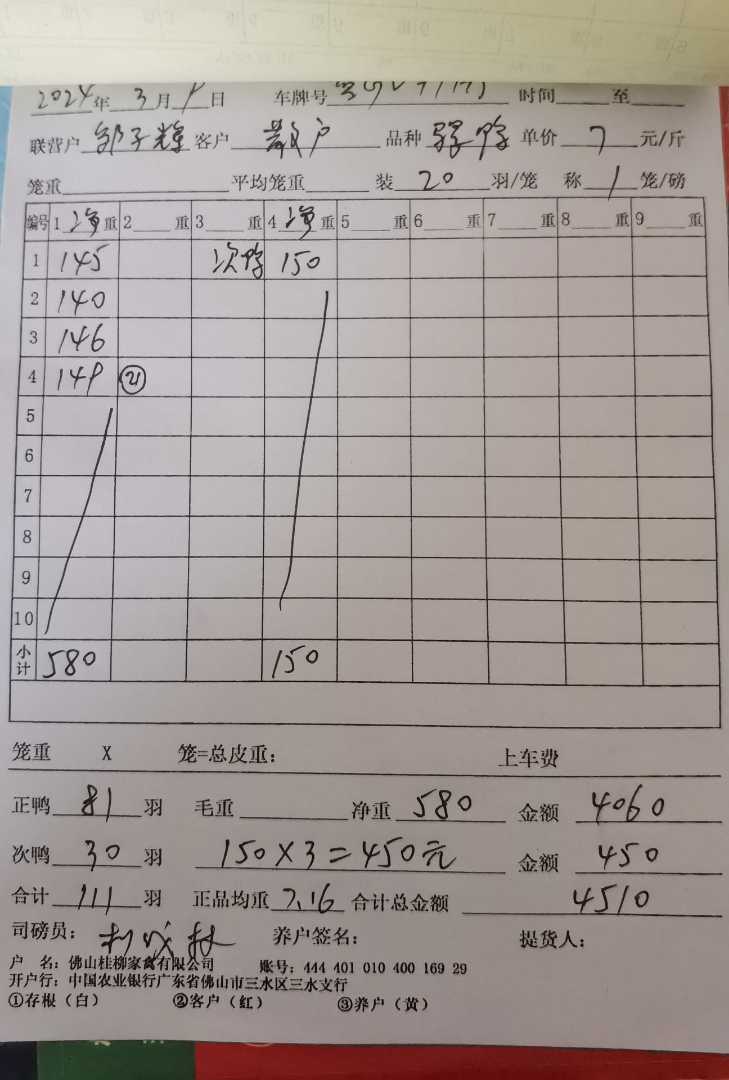 2024年 3月 9日 车牌号 时间 至
联营户 邹子辉 客户 散户 品种 骡鸭 单价 7 元/斤
笼重 平均笼重 装 20 羽/笼 称 1 笼/磅
编号 1 净 重 2 重 3 重 4 净 重 5 重 6 重 7 重 8 重 9 重
1 145 次鸭 150
2 140
3 146
4 149 ㉑
5
6
7
8
9
10
小计 580 150
笼重 X 笼=总皮重: 上车费
正鸭 81 羽 毛重 净重 580 金额 4060
次鸭 30 羽 150×3=450元 金额 450
合计 111 羽 正品均重 7.16 合计总金额 4510
司磅员: 养户签名: 提货人:
户 名: 佛山桂柳家禽有限公司 账号: 444 401 010 400 169 29
开户行: 中国农业银行广东省佛山市三水区三水支行
①存根(白) ②客户(红) ③养户(黄)